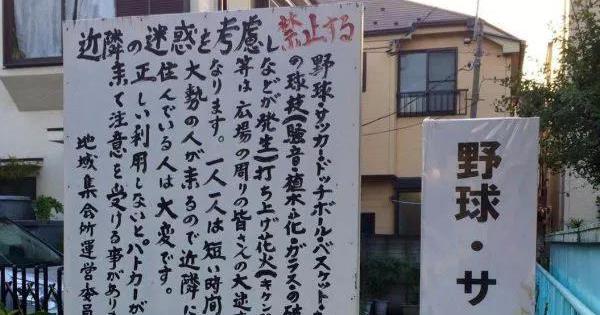 近隣の迷惑を考慮し禁止する
野球・サッカ・ドッチボール・バスケット・
の球技(騒音・植木・花・ガラスの破
などが発生)打ち上げ花火(キケン
等は広場の周りの皆さんの大迷
なります。一人一人は短い時間
大勢の人が来るので近隣に
住んでいる人は大変です。
の正しい利用しないと、パトカーが
来て注意を受ける事があり
地域集会所運営委員
野球・サ